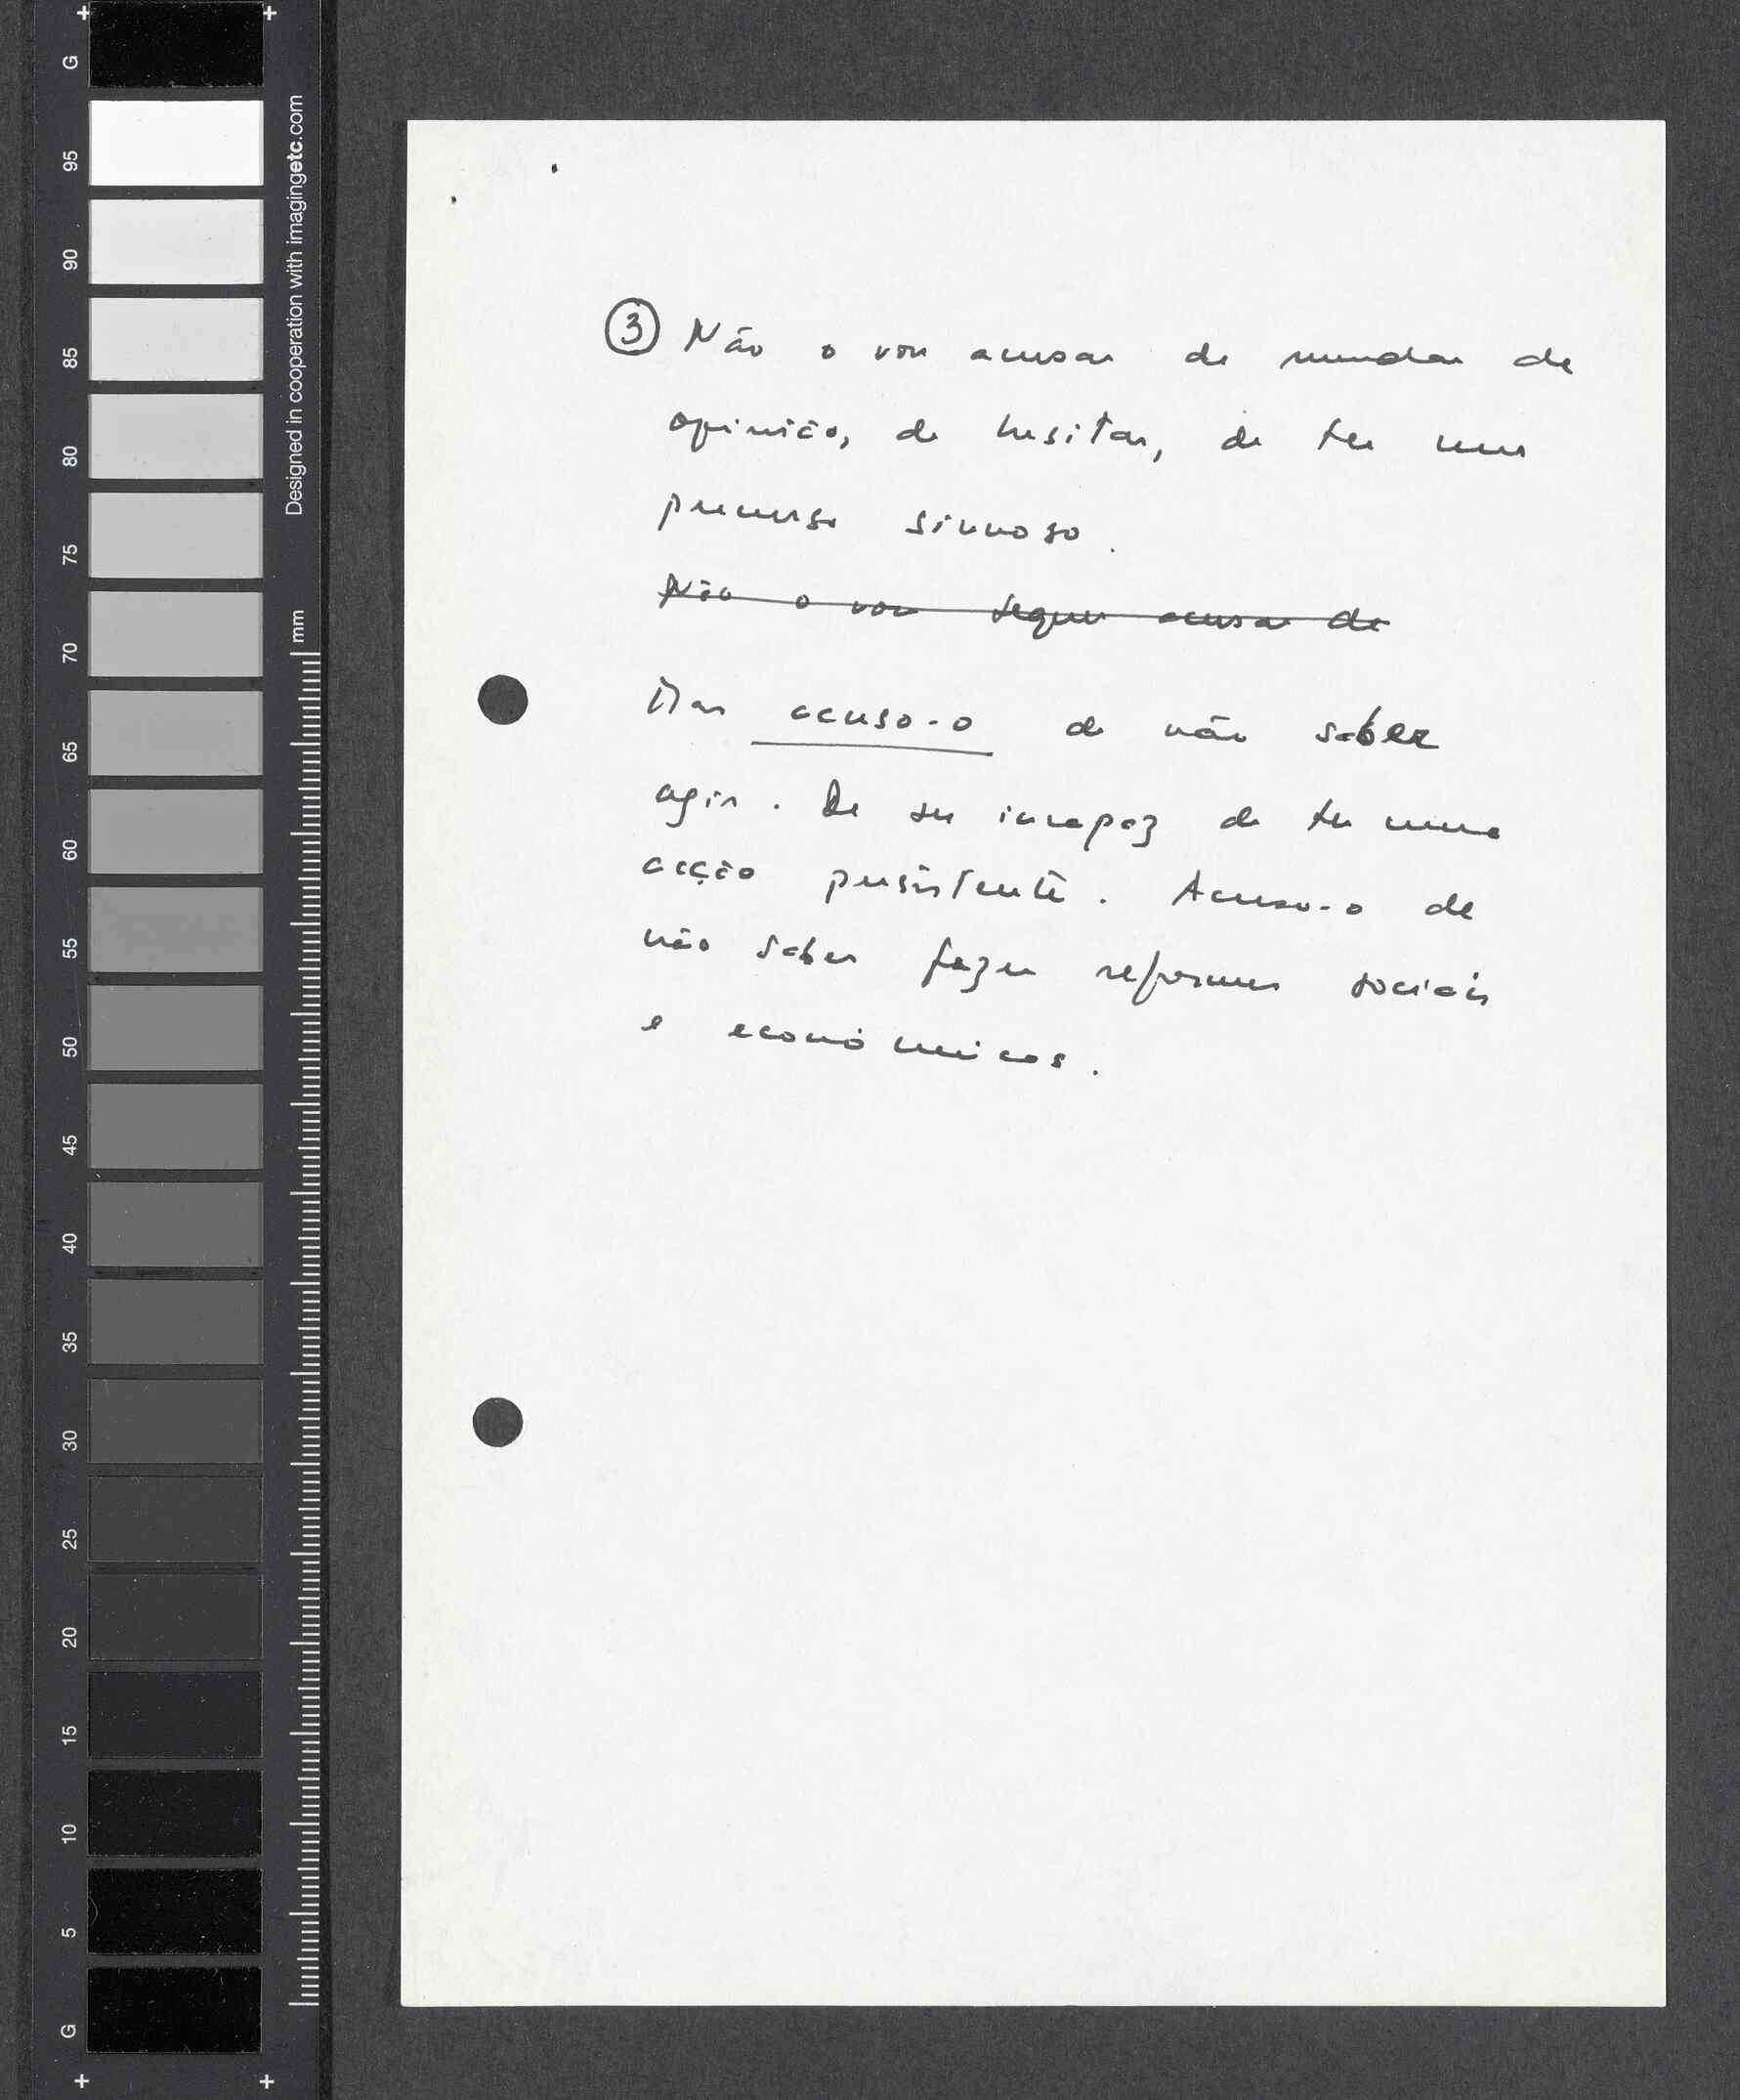 G
95
90
85
80
75
70
65
60
55
50
45
40
35
30
25
20
15
10
5
G
Designed in cooperation with imagingetc.com
mm
3 Não o vou acusar de mudar de
opinião, de hesitar, de ter um
percurso sinuoso.
Não o vou sequer acusar de
Mas acuso-o de não saber
agir. De ser incapaz de ter uma
acção persistente. Acuso-o de
não saber fazer reformas sociais
e económicas.